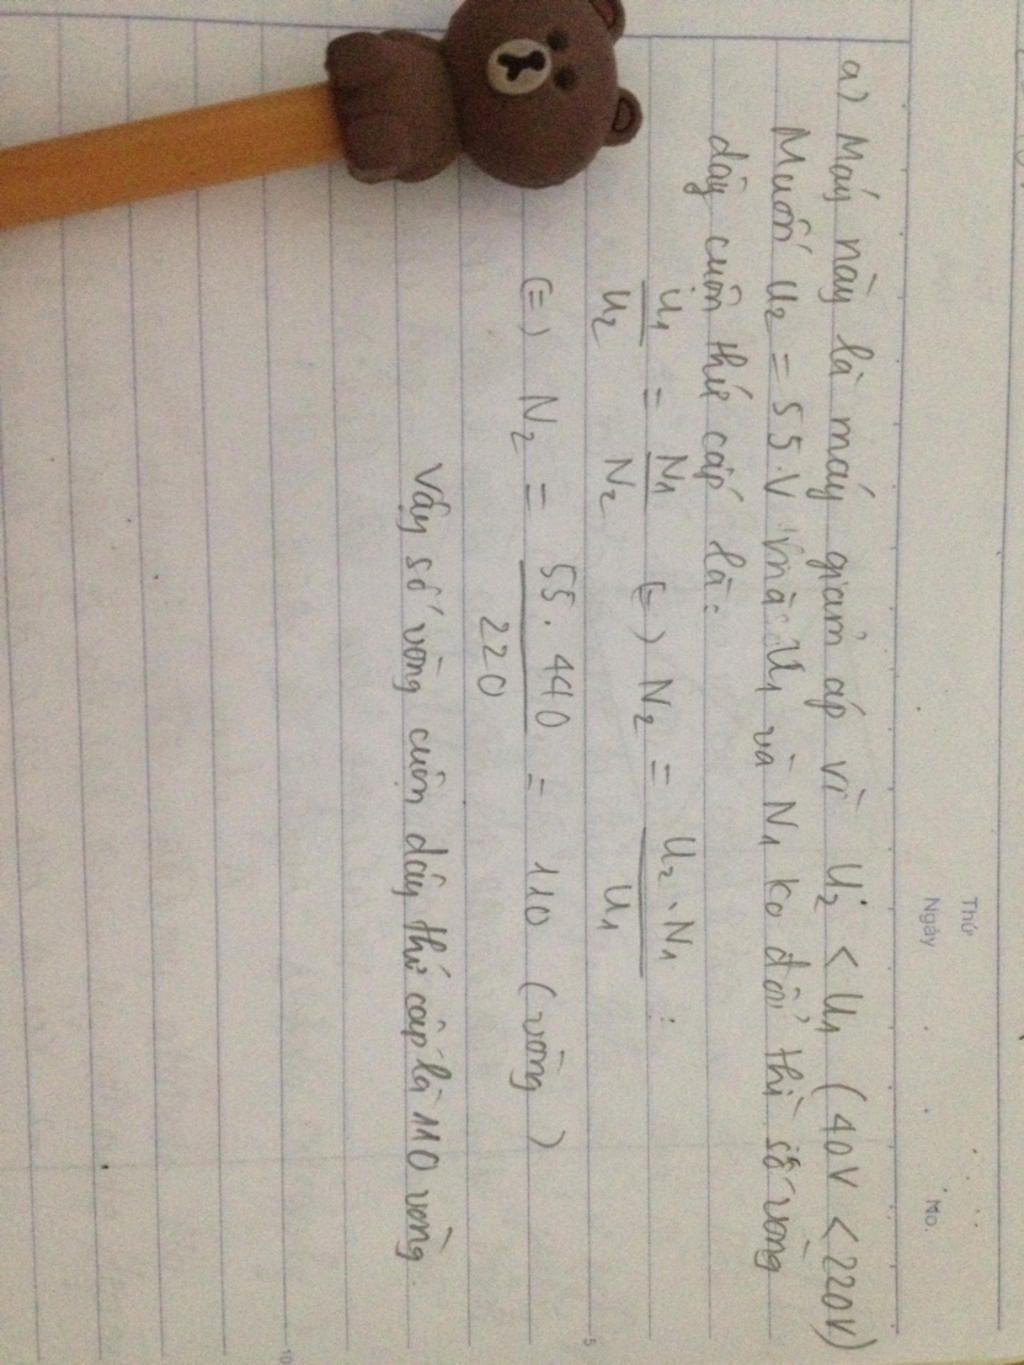 Thứ
Ngày
No.
a) Máy này là máy giảm áp vì U2 < U1 (40V < 220V)
Muốn U2 = 55V mà U1 và N1 ko đổi thì số vòng
dây cuộn thứ cấp là:
U1/U2 = N1/N2 (=) N2 = U2.N1/U1 :
(=) N2 = 55.440/220 = 110 (vòng)
Vậy số vòng cuộn dây thứ cấp là 110 vòng.
5
10